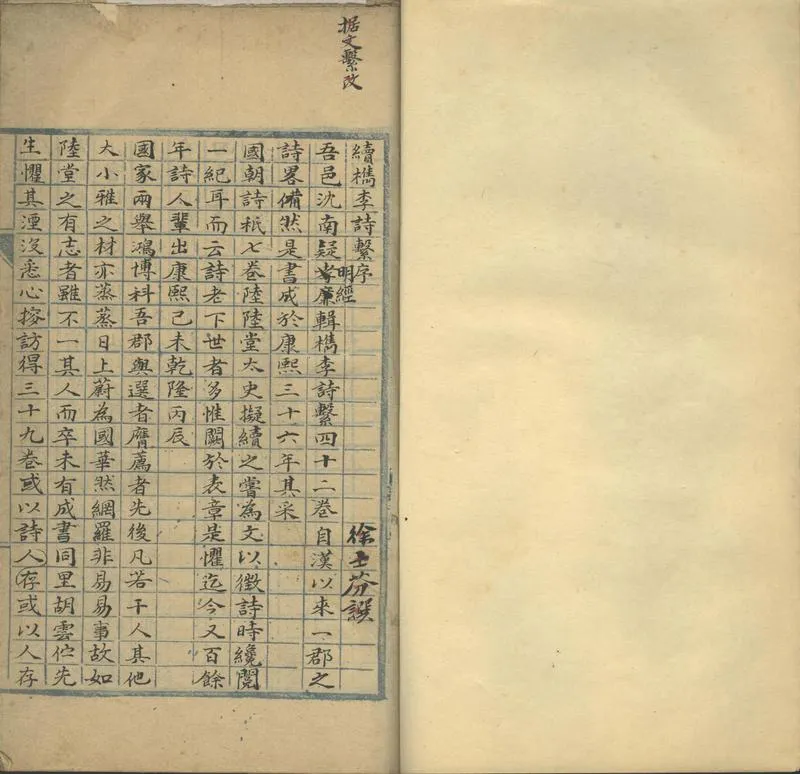 据文繫改
續檇李詩繫序
徐士芬譔
吾邑沈南疑孝廉明經輯檇李詩繫四十二卷自漢以來一郡之
詩畧備然是書成於康熙三十六年其采
國朝詩秖七卷陸陸堂太史擬續之嘗為文以徵詩時纔閱
一紀耳而云詩老下世者多惟闕於表章是懼迄今又百餘
年詩人輩出康熙己未乾隆丙辰
國家兩舉鴻博科吾郡與選者膺薦者先後凡若干人其他
大小雅之材亦蒸蒸日上蔚為國華然網羅非易易事故如
陸堂之有志者雖不一其人而卒未有成書同里胡雲伫先
生懼其湮沒悉心搜訪得三十九卷或以詩人存或以人存